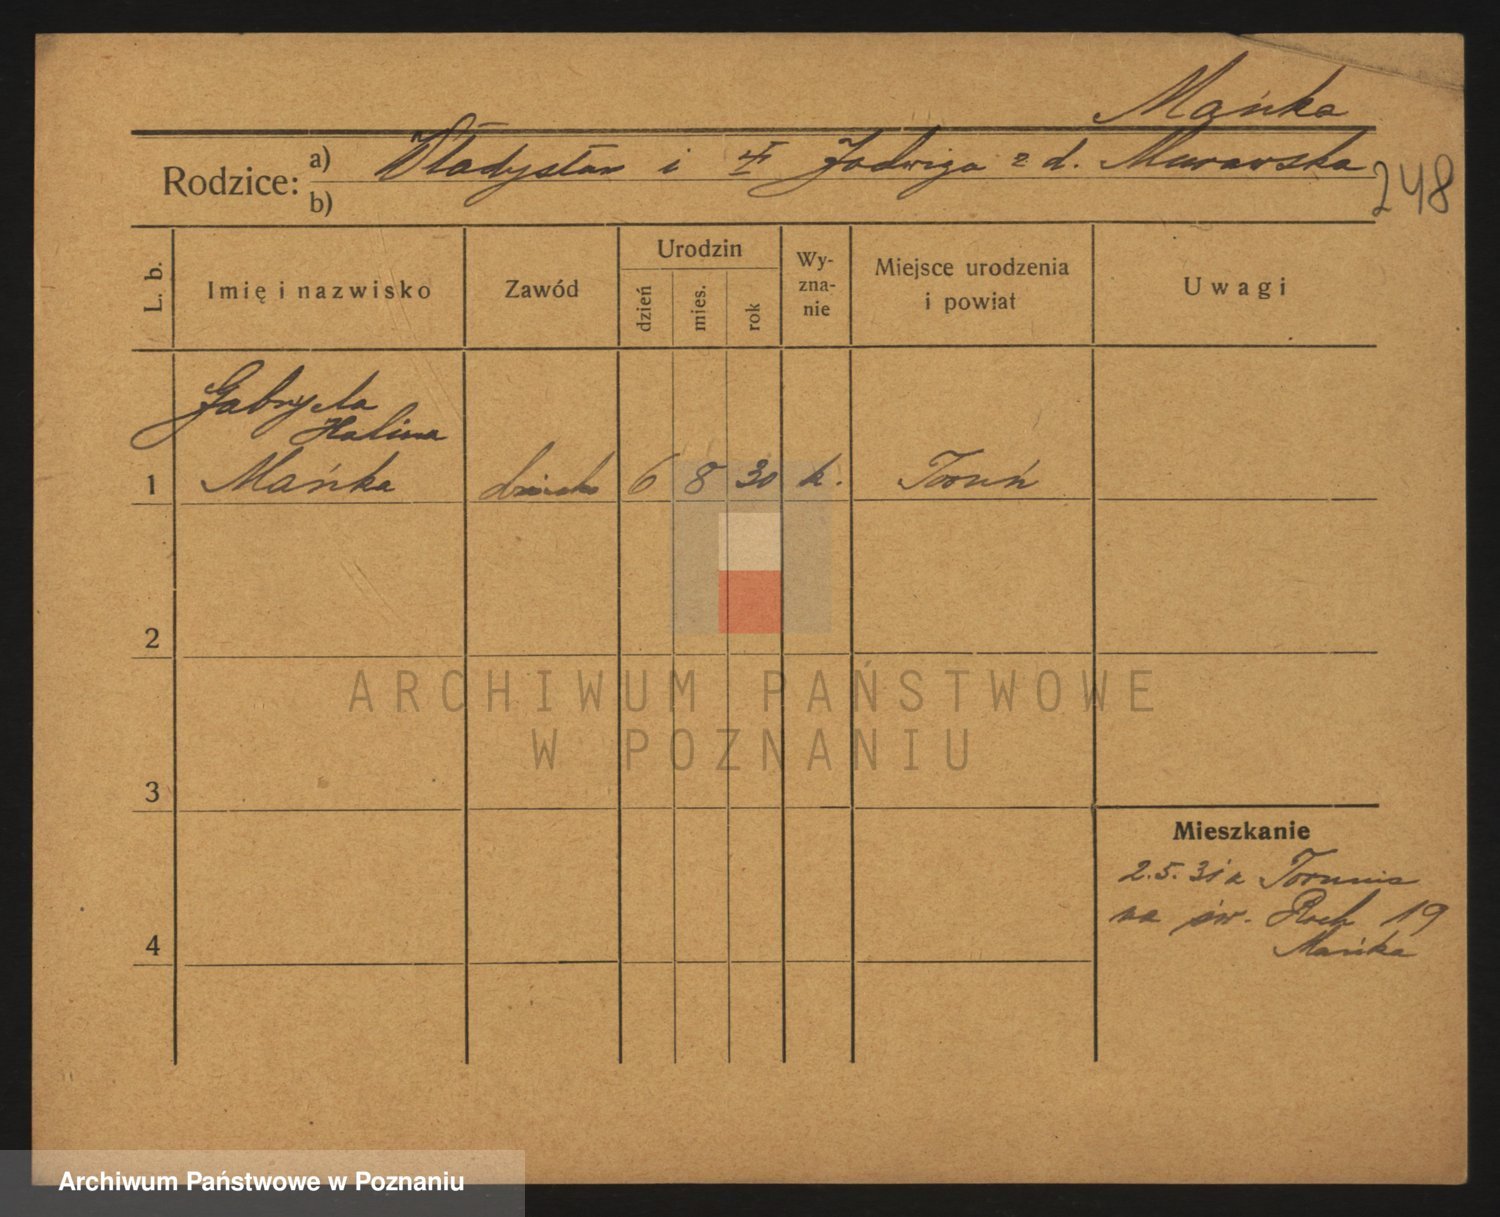 Mańka
Rodzice: a) Władysław i Jadwiga z d. Murawska
b)
248
L. b.
Imię i nazwisko
Zawód
Urodzin
dzień
mies.
rok
Wy-
zna-
nie
Miejsce urodzenia
i powiat
Uwagi
Gabryela
Halina
1 Mańka dziecko 6 8 30 k. Toruń
2
3
4
ARCHIWUM PAŃSTWOWE
W POZNANIU
Mieszkanie
2.5.31 z Torunia
na św. Roch 19
Mańka
Archiwum Państwowe w Poznaniu